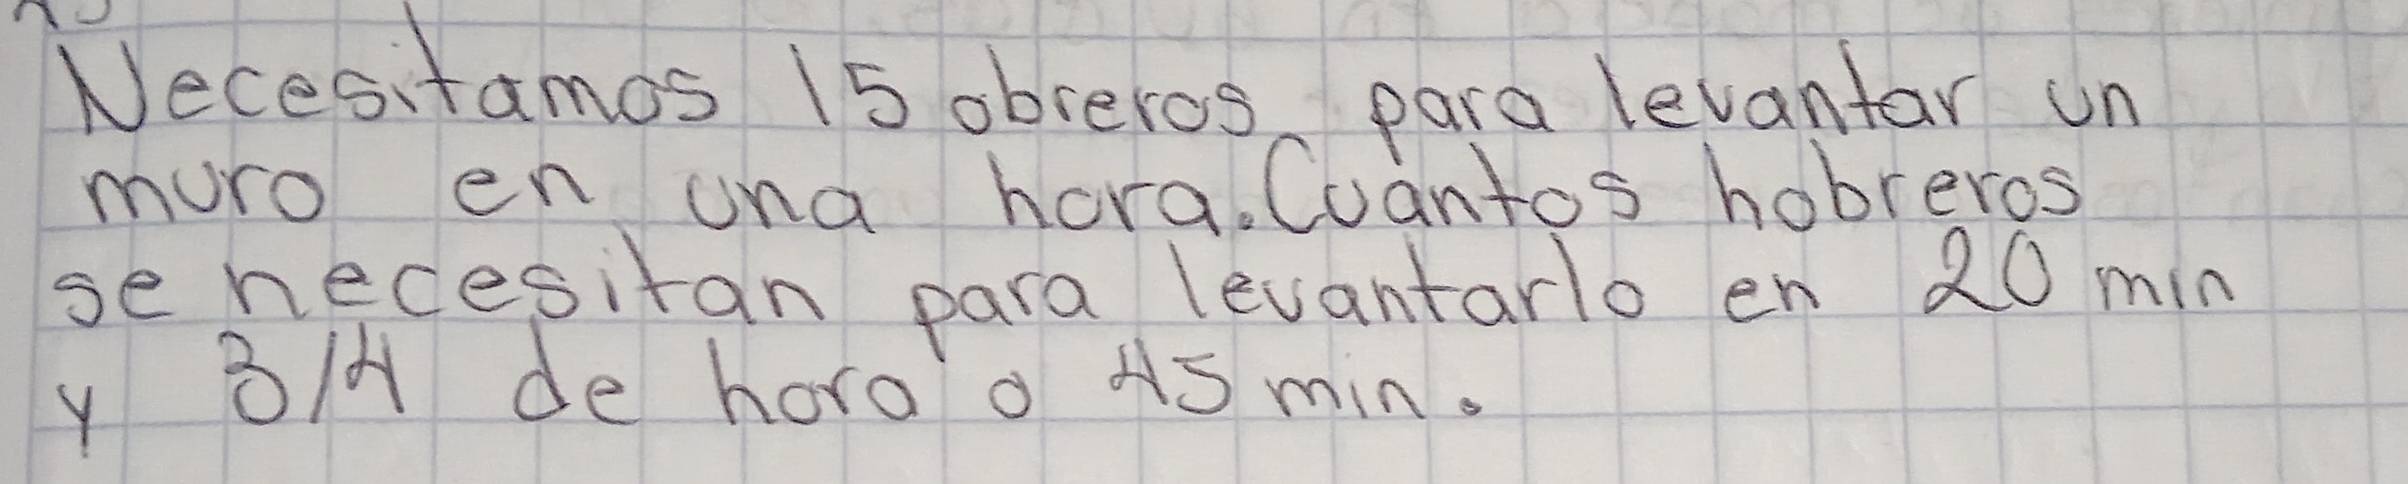 Necesitamos 15 obreros para levantar un
muro en una hora. Cuantos hobreros
se necesitan para levantarlo en 20 min
y 3/4 de hora o 45 min.